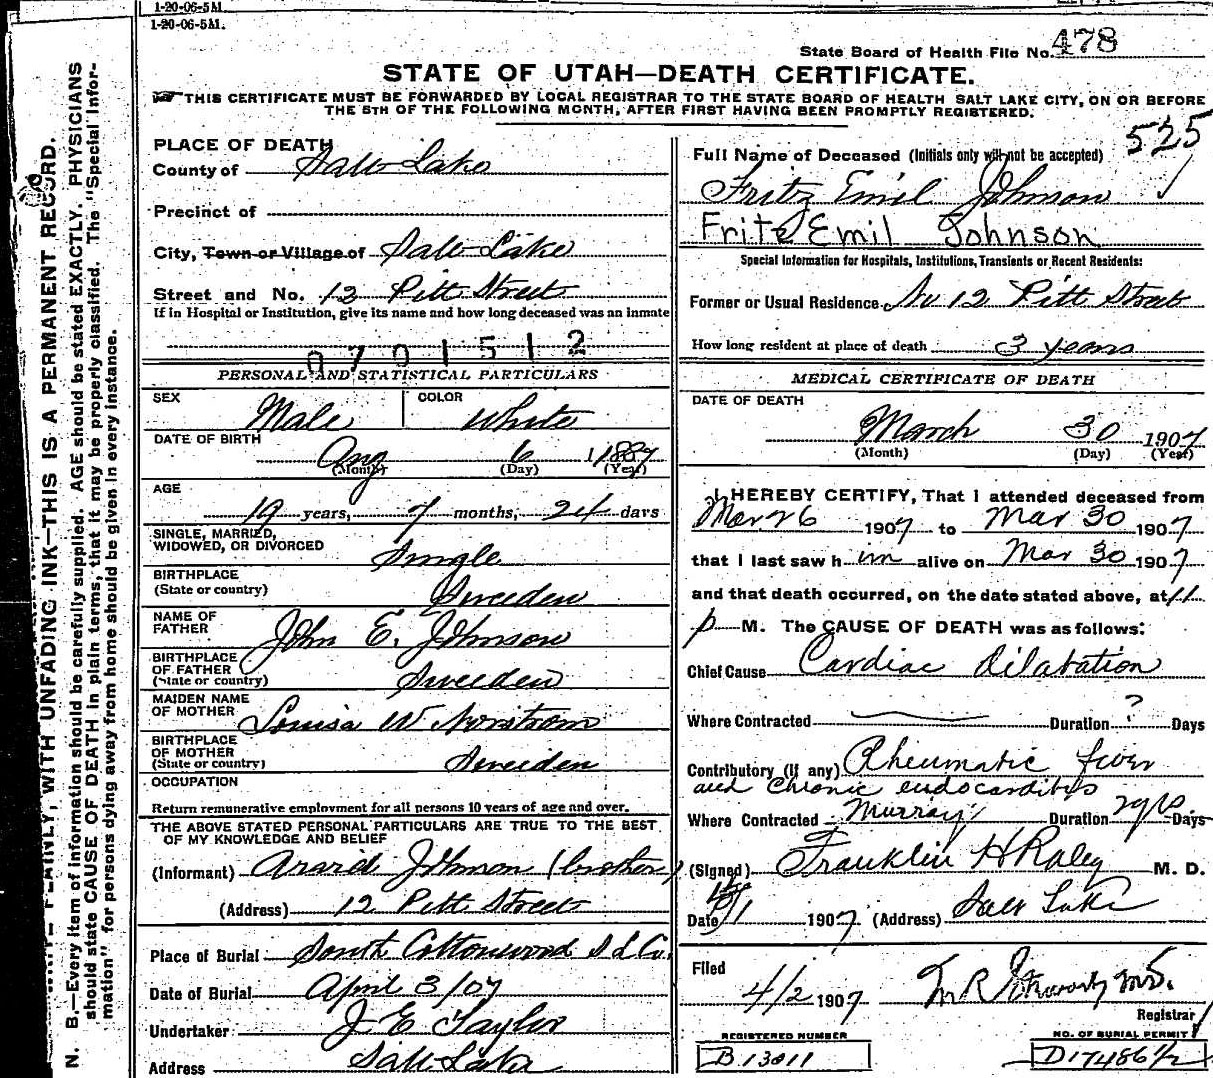 1-20-06-5M.
1-20-06-5M.
State Board of Health File No. 478
STATE OF UTAH—DEATH CERTIFICATE.
THIS CERTIFICATE MUST BE FORWARDED BY LOCAL REGISTRAR TO THE STATE BOARD OF HEALTH SALT LAKE CITY, ON OR BEFORE
THE 5TH OF THE FOLLOWING MONTH, AFTER FIRST HAVING BEEN PROMPTLY REGISTERED.
525
N. B.—Every item of information should be carefully supplied. AGE should be stated EXACTLY. PHYSICIANS
should state CAUSE OF DEATH in plain terms, that it may be properly classified. The "Special Infor-
mation" for persons dying away from home should be given in every instance.
PLAINLY, WITH UNFADING INK—THIS IS A PERMANENT RECORD.
PLACE OF DEATH
County of Salt Lake
Precinct of
City, Town or Village of Salt Lake
Street and No. 12 Pitt Street
If in Hospital or Institution, give its name and how long deceased was an inmate
0701512
PERSONAL AND STATISTICAL PARTICULARS
SEX Male COLOR White
DATE OF BIRTH
Aug 6 1887
(Month) (Day) (Year)
AGE
19 years, 7 months, 24 days
SINGLE, MARRIED,
WIDOWED, OR DIVORCED Single
BIRTHPLACE
(State or country) Sweeden
NAME OF
FATHER John E. Johnson
BIRTHPLACE
OF FATHER
(State or country) Sweeden
MAIDEN NAME
OF MOTHER Louisa W Nystrom
BIRTHPLACE
OF MOTHER
(State or country) Sweeden
OCCUPATION
Return remunerative employment for all persons 10 years of age and over.
THE ABOVE STATED PERSONAL PARTICULARS ARE TRUE TO THE BEST
OF MY KNOWLEDGE AND BELIEF
(Informant) Johnson (brother)
(Address) 12 Pitt Street
Place of Burial South Cottonwood S L Co.
Date of Burial April 3/07
Undertaker J E Taylor
Address Salt Lake
Full Name of Deceased (Initials only will not be accepted)
Fritz Emil Johnson
Fritz Emil Johnson
Special Information for Hospitals, Institutions, Transients or Recent Residents:
Former or Usual Residence No 12 Pitt Street
How long resident at place of death 3 years
MEDICAL CERTIFICATE OF DEATH
DATE OF DEATH
March 30 1907
(Month) (Day) (Year)
I HEREBY CERTIFY, That I attended deceased from
Mar 26 1907 to Mar 30 1907
that I last saw him alive on Mar 30 1907
and that death occurred, on the date stated above, at 11
p M. The CAUSE OF DEATH was as follows:
Chief Cause Cardiac dilatation
Where Contracted Duration ? Days
Contributory (if any) Rheumatic fever
and Chronic endocarditis
Where Contracted Murray Duration 2 yrs. Days
(Signed) Franklin H Raley M. D.
Date 1907 (Address) Salt Lake
Filed
4/2 1907
Registrar
REGISTERED NUMBER
B 13011
NO. OF BURIAL PERMIT
D17486½